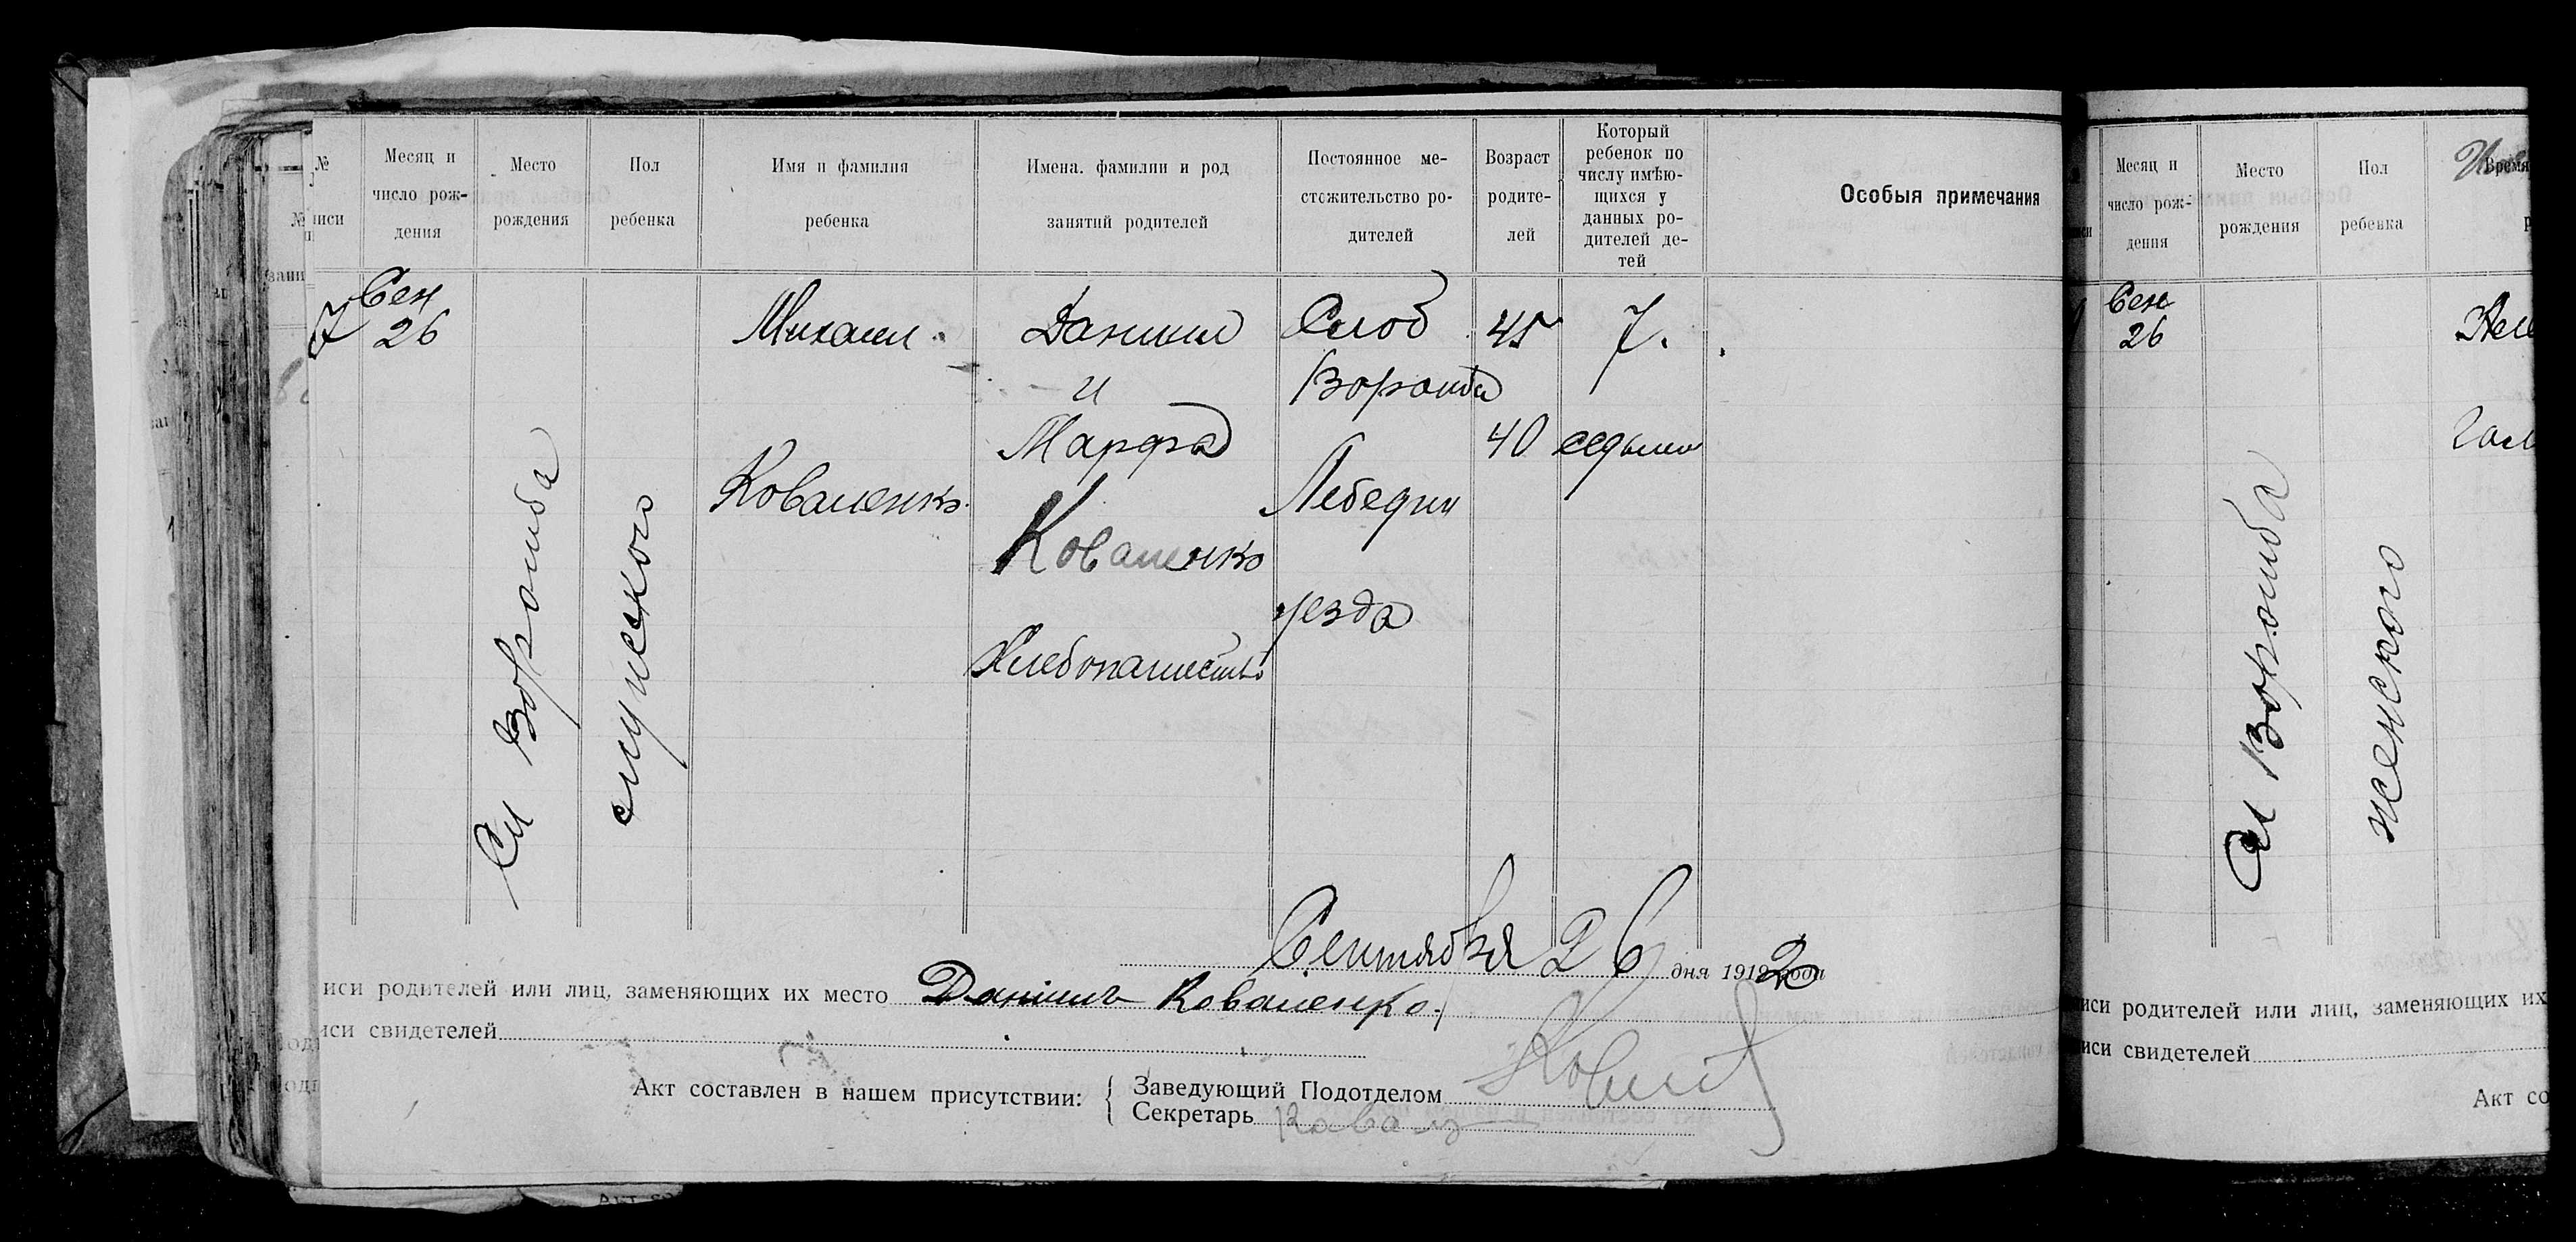 №
иси
Месяц и
число рож-
дения
Место
рождения
Пол
ребенка
Имя и фамилия
ребенка
Имена, фамилии и род
занятий родителей
Постоянное ме-
стожительство ро-
дителей
Возраст
родите-
лей
Который
ребенок по
числу имѣю-
щихся у
данных ро-
дителей де-
тей
Особыя примечания
7
Сен
26
Сл Ворожба
мужского
Михаил
Коваленко
Даниил
и
Марфа
Коваленко
Хлебопашество
Слоб
Ворожба
Лебедин
уезда
45
40
7.
седьмой
Сентября 26 дня 1912 года
иси родителей или лиц, заменяющих их место Даниилъ Коваленко.
иси свидетелей
Акт составлен в нашем присутствии:
Заведующий Подотделом
Секретарь
Месяц и
число рож-
дения
Место
рождения
Пол
ребенка
Сен
26
Сл Ворожба
женского
иси родителей или лиц, заменяющих их
иси свидетелей
Акт со